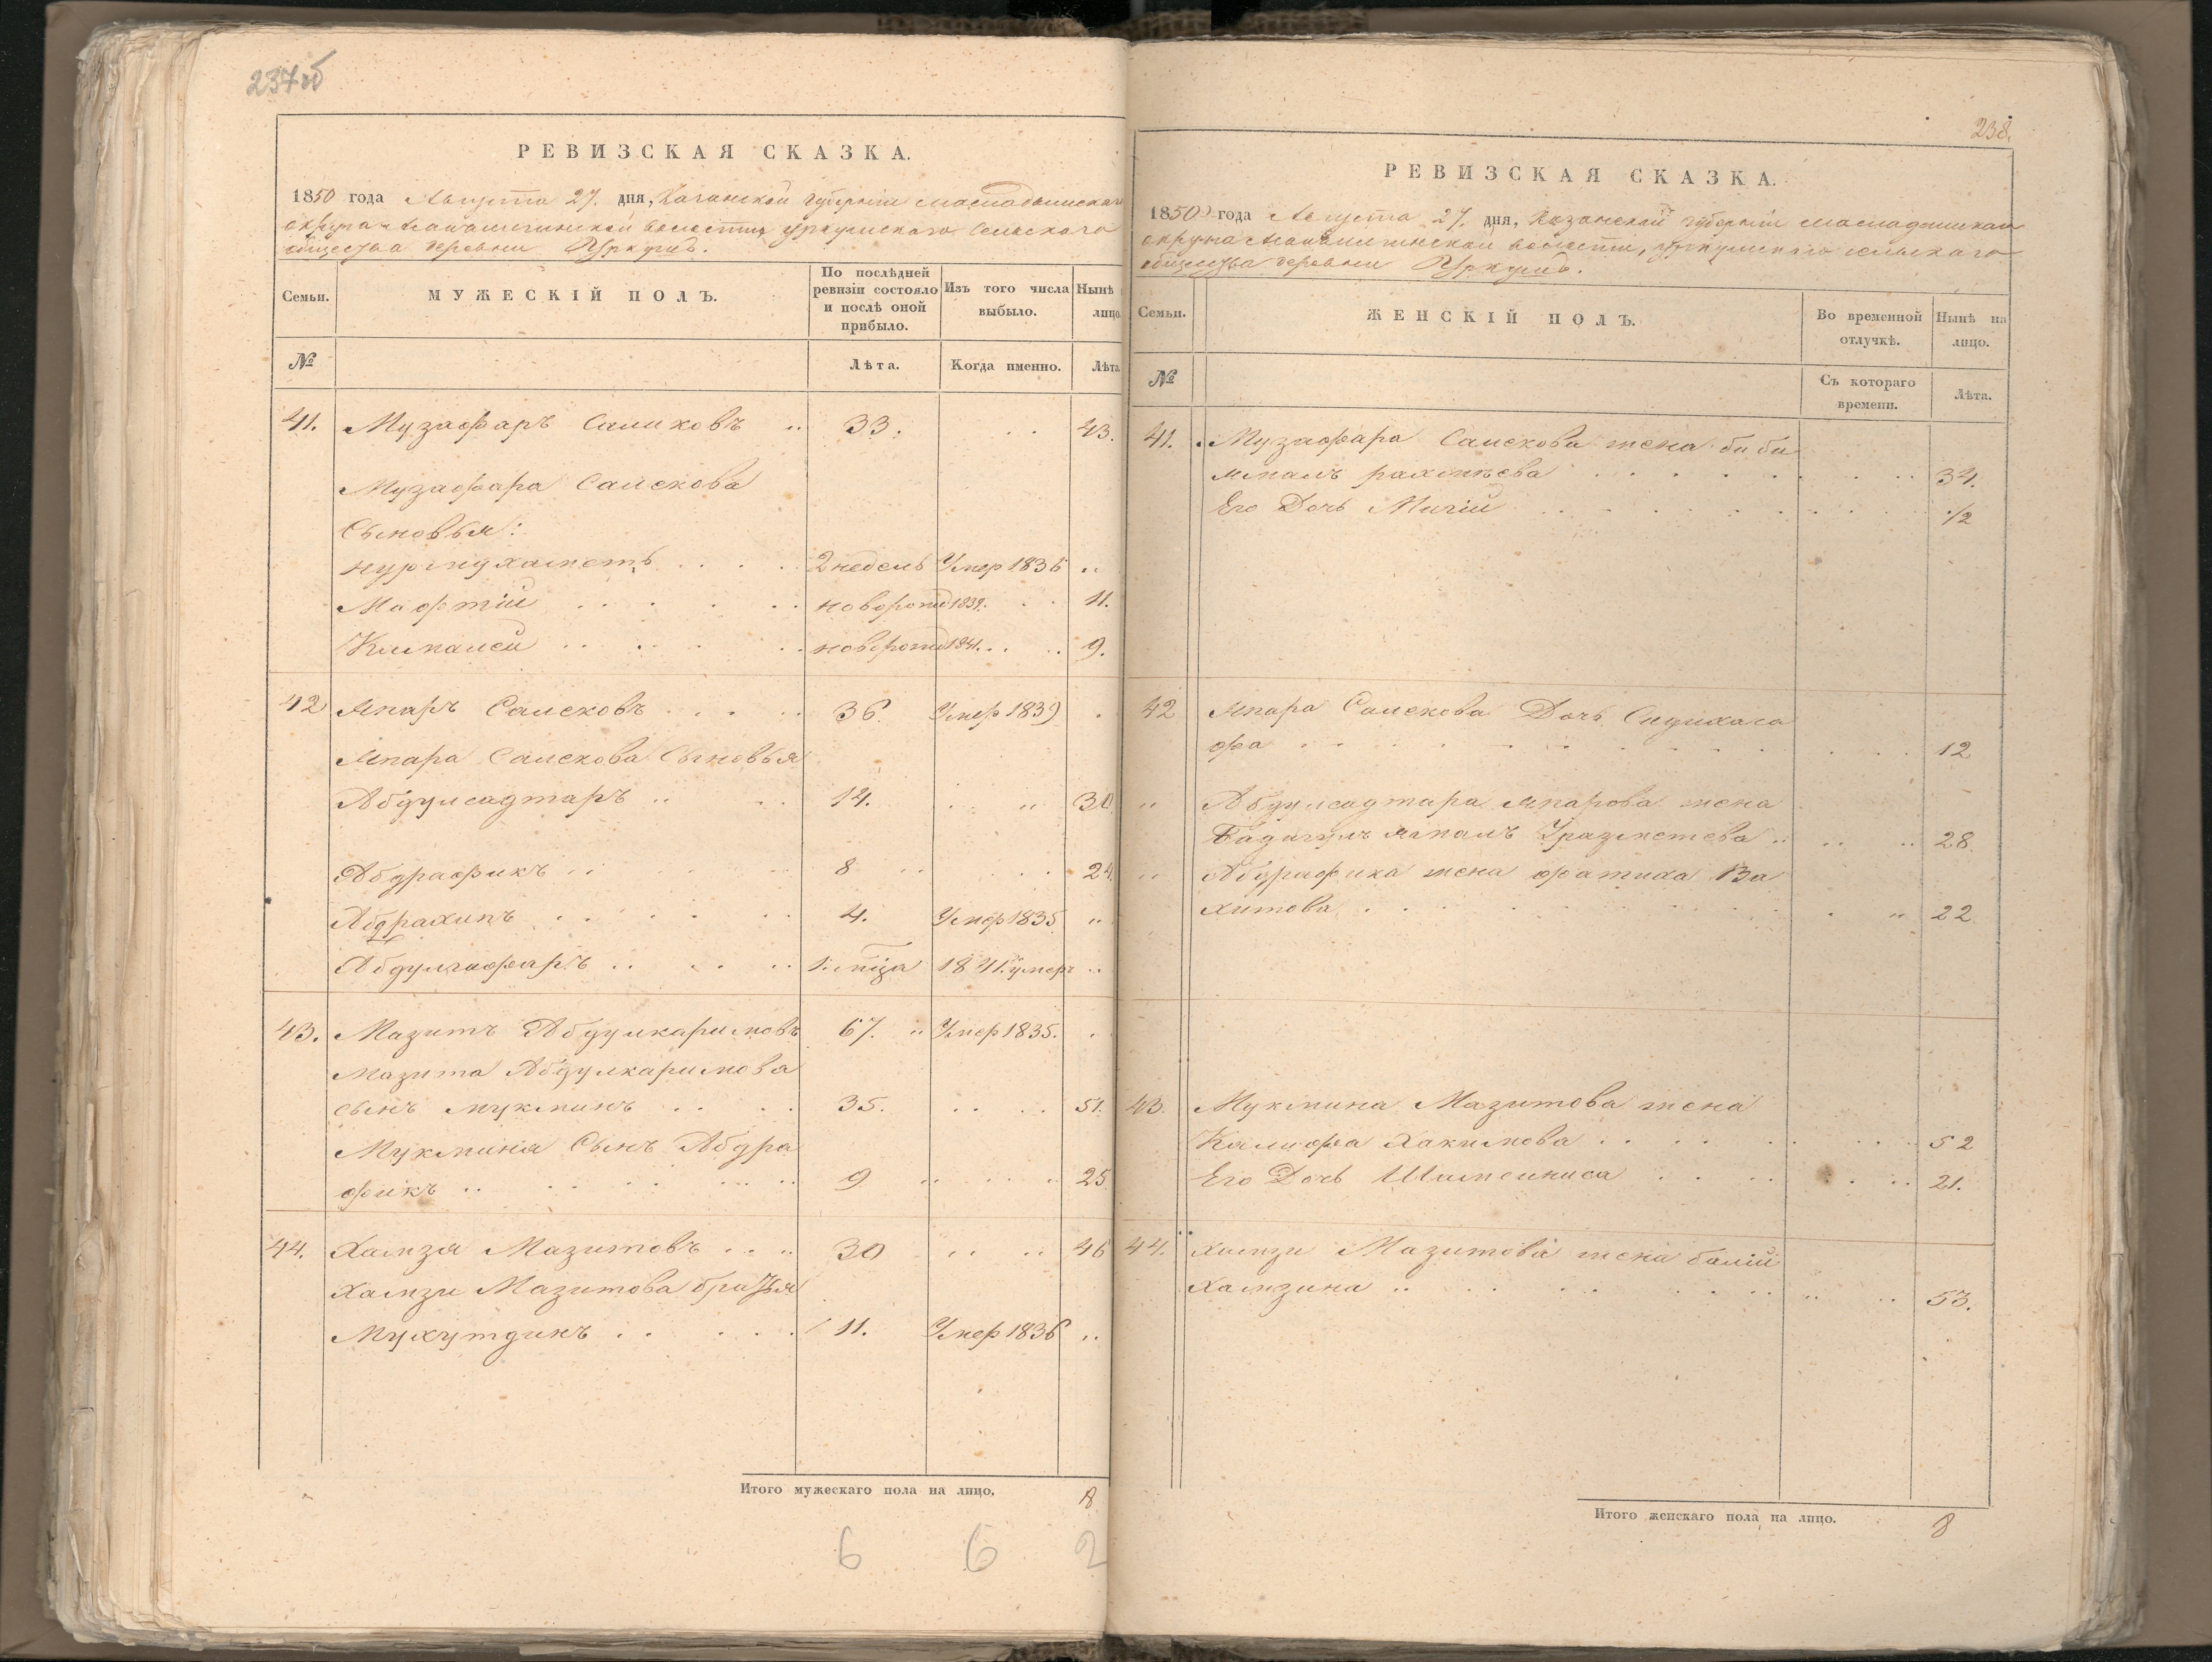 237об
РЕВИЗСКАЯ СКАЗКА.
1850 года Августа 27. дня, Казанской губернии Мамадышскаго
округа волости, Уркушскаго Сельскаго
общества деревни Уркушъ.
Семьи.
МУЖЕСКІЙ ПОЛЪ.
По послѣдней ревизіи состояло и послѣ оной прибыло.
Изъ того числа выбыло.
Нынѣ лицо
№
Лѣта.
Когда именно.
Лѣта
41. Музафаръ Салиховъ .. 33. . . 43.
Музафара Салихова
Сыновья:
2 недель Умер 1836 ..
Мафтій . . . . новорожд 1839. . . 11.
новорожд 1841. . . 9.
42 Апаръ Салиховъ . . . . 36. Умер 1839 .
Апара Салихова Сыновья
Абдулсадтаръ .. . . 14. . „ 30.
Абдрафикъ . . 8 .. . . 24.
Абдрахипъ . . . . 4. Умер 1835 „
Абдулгафаръ .. . . .. 1. мца 1841. умеръ ..
43. Мазитъ Абдулкаримовъ 67. „ Умер 1835. .
Мазита Абдулкаримова
сынъ Мукминъ . . . . 35. . . . . 51.
Мукмина Сынъ Абдра
фикъ .. . . . . 9 . . . . 25
44. Хамза Мазитовъ . . . 30 . . . . 46
Хамзи Мазитова братья
Мухутдинъ . . . . . 11. Умер 1836 ..
Итого мужескаго пола на лицо. 8
6 6 2
238.
РЕВИЗСКАЯ СКАЗКА.
1850 года Августа 27. дня, Казанской губерніи Мамадышскаго
округа волости, Уркушскаго сельскаго
общества деревни Уркушъ.
Семьи.
ЖЕНСКІЙ ПОЛЪ.
Во временной отлучкѣ.
Нынѣ на лицо.
№
Съ котораго времени.
Лѣта.
41. Музафара Салихова жена биби
. . . . . 34.
Его Дочь . . . . . . 1/2
42 Апара Салихова Дочь
фа . . . . . . . . 12
„ Абдулсадтара Апарова жена
Уразметева .. .. .. 28.
„ Абдрафика жена Фатиха Ва
хитова . . . . . . . „ 22
43. Мукмина Мазитова жена
Халифа Хакимова . . . . . 52
Его Дочь Шамсиниса . . . . . 21.
44. Хамзи Мазитова жена
Хамзина .. . . . . . .. .. 53.
Итого женскаго пола на лицо. 8